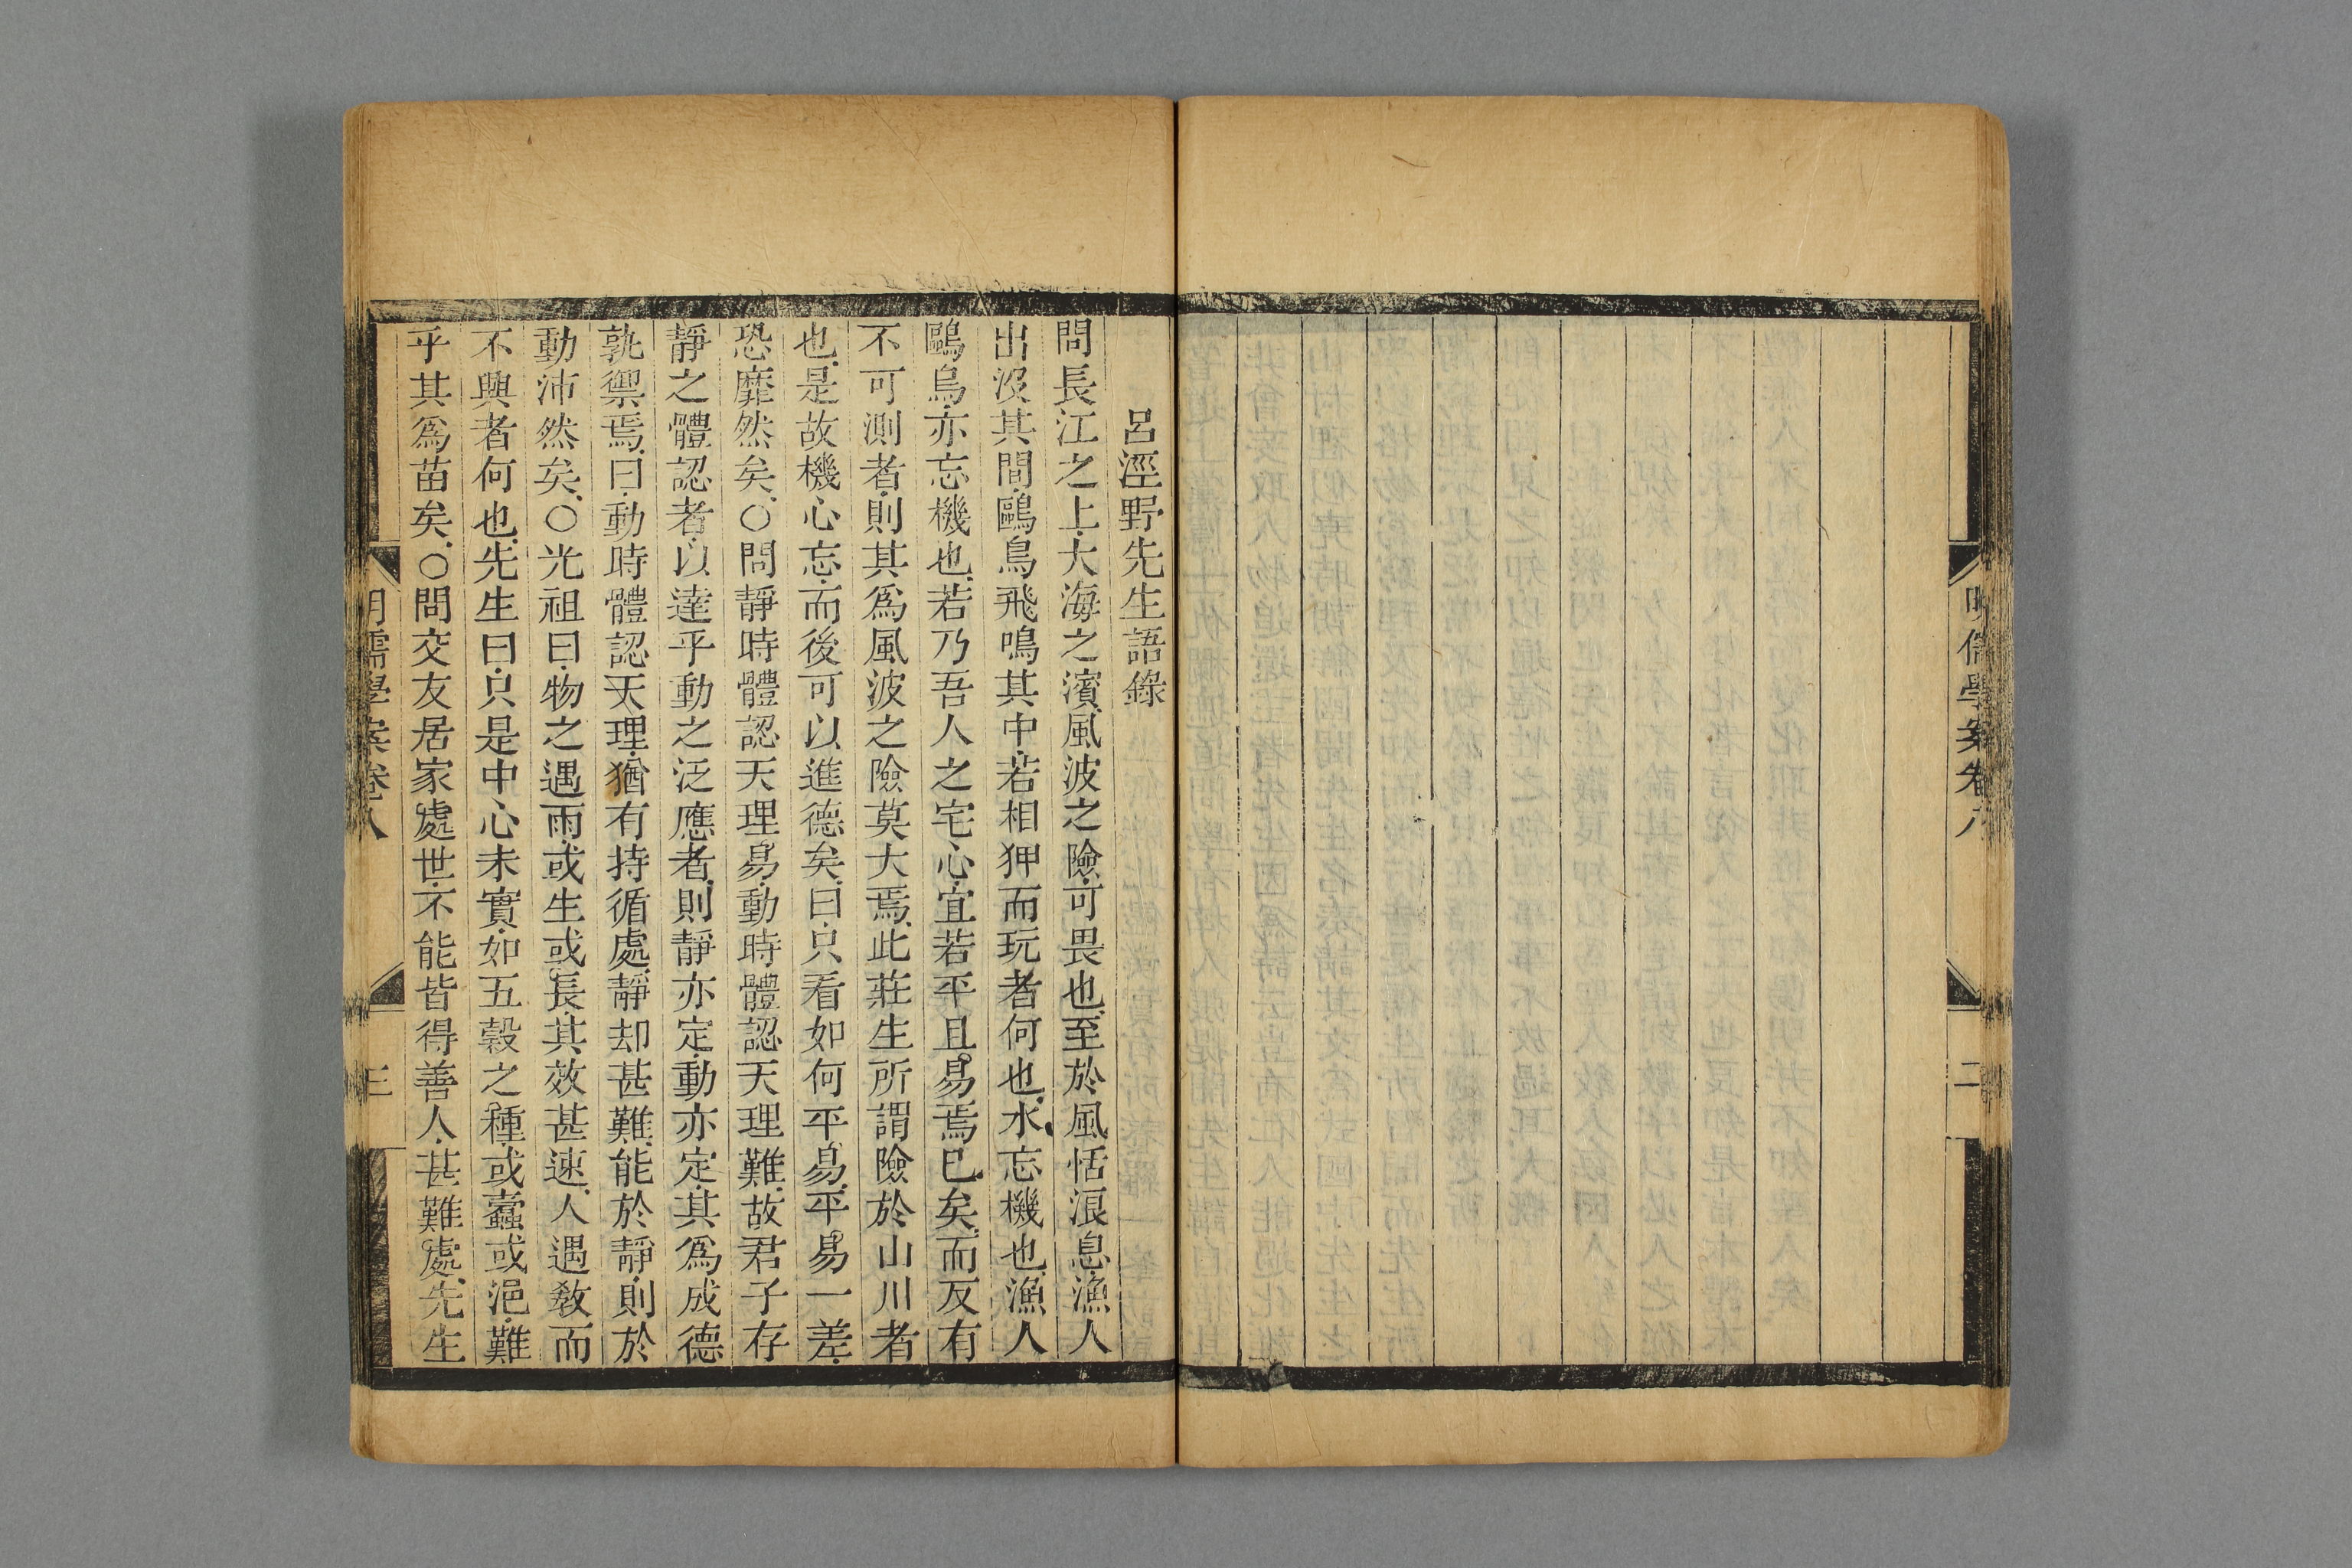 明儒學案卷八
二
呂涇野先生語錄
問長江之上大海之濱風波之險可畏也至於風恬浪息漁人
出沒其間鷗鳥飛鳴其中若相狎而玩者何也水忘機也漁人
鷗鳥亦忘機也若乃吾人之宅心宜若平且易焉已矣而反有
不可測者則其爲風波之險莫大焉此莊生所謂險於山川者
也是故機心忘而後可以進德矣曰只看如何平易平易一差
恐靡然矣○問靜時體認天理易動時體認天理難故君子存
靜之體認者以達乎動之泛應者則靜亦定動亦定其爲成德
孰禦焉曰動時體認天理猶有持循處靜却甚難能於靜則於
動沛然矣○光祖曰物之遇雨或生或長其效甚速人遇敎而
不興者何也先生曰只是中心未實如五穀之種或蠹或浥難
乎其爲苗矣○問交友居家處世不能皆得善人甚難處先生
明儒學案卷八
三